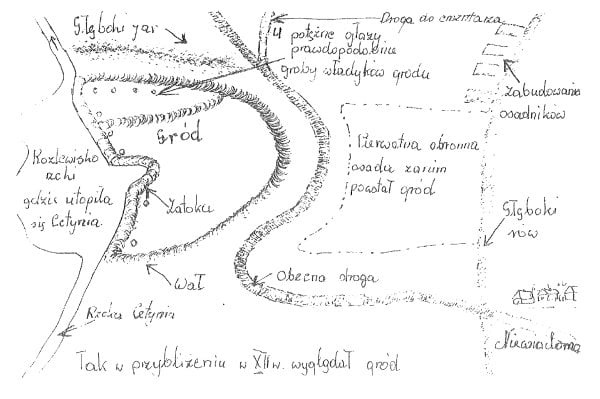 Głęboki jar
Droga do cmentarza
4 potężne głazy
prawdopodobnie
groby władyków grodu
Zabudowania
osadników
Gród
Pierwotna obronna
osada zanim
powstał gród
Rozlewisko
rzeki
gdzie utopiła
się Cetynia.
Zatoka
Głęboki
rów
Wał
Obecna droga
Rzeka Cetynia
Niewiadoma
Tak w przybliżeniu w XII w. wyglądał gród